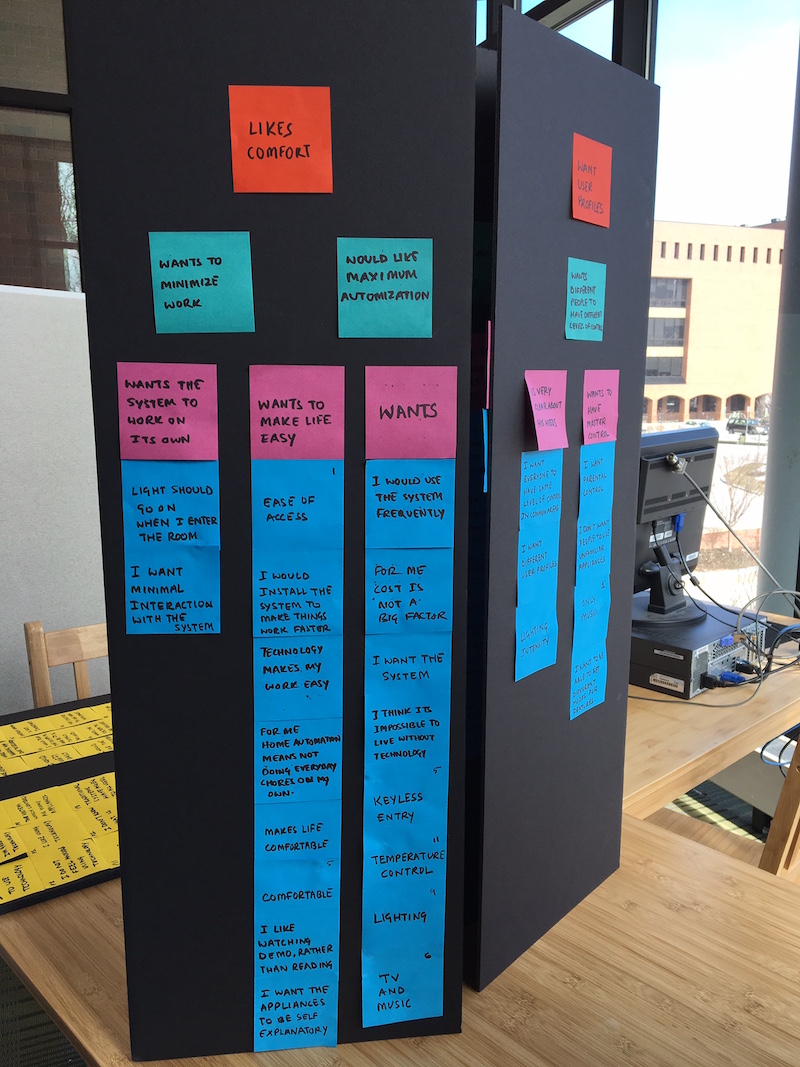 LIKES
COMFORT
WANTS TO
MINIMIZE
WORK
WOULD LIKE
MAXIMUM
AUTOMIZATION
WANTS THE
SYSTEM TO
WORK ON
ITS OWN
LIGHT SHOULD
GO ON
WHEN I ENTER
THE ROOM
I WANT
MINIMAL
INTERACTION
WITH THE SYSTEM
WANTS TO
MAKE LIFE
EASY
1
EASE OF
ACCESS
I WOULD
INSTALL THE
SYSTEM TO
MAKE THINGS
WORK FASTER
TECHNOLOGY
MAKES MY
WORK EASY
FOR ME
HOME AUTOMATION
MEANS NOT
DOING EVERYDAY
CHORES ON MY
OWN.
MAKES LIFE
COMFORTABLE
5
COMFORTABLE
I LIKE
WATCHING
DEMO, RATHER
THAN READING
I WANT THE
APPLIANCES
TO BE SELF
EXPLANATORY
WANTS
I WOULD USE
THE SYSTEM
FREQUENTLY
FOR ME
COST IS
NOT A
BIG FACTOR
I WANT THE
SYSTEM
I THINK ITS
IMPOSSIBLE TO
LIVE WITHOUT
TECHNOLOGY
5
KEYLESS
ENTRY
11
TEMPERATURE
CONTROL
9
LIGHTING
6
TV
AND
MUSIC
WANT
USER
PROFILES
WANTS
DIFFERENT
PEOPLE TO
HAVE DIFFERENT
LEVEL OF CONTROL
IS VERY
CLEAR ABOUT
HIS NEEDS
WANTS TO
HAVE
MASTER
CONTROL
I WANT
EVERYONE TO
HAVE SAME
LEVEL OF CONTROL
IN COMMON AREAS
I WANT
DIFFERENT
USER PROFILES
LIGHTING
INTENSITY
I WANT
PARENTAL
CONTROL
I DON'T WANT
PEOPLE TO USE
APPLIANCES
ONLY
MUSIC
I WANT TO BE
ABLE TO SET